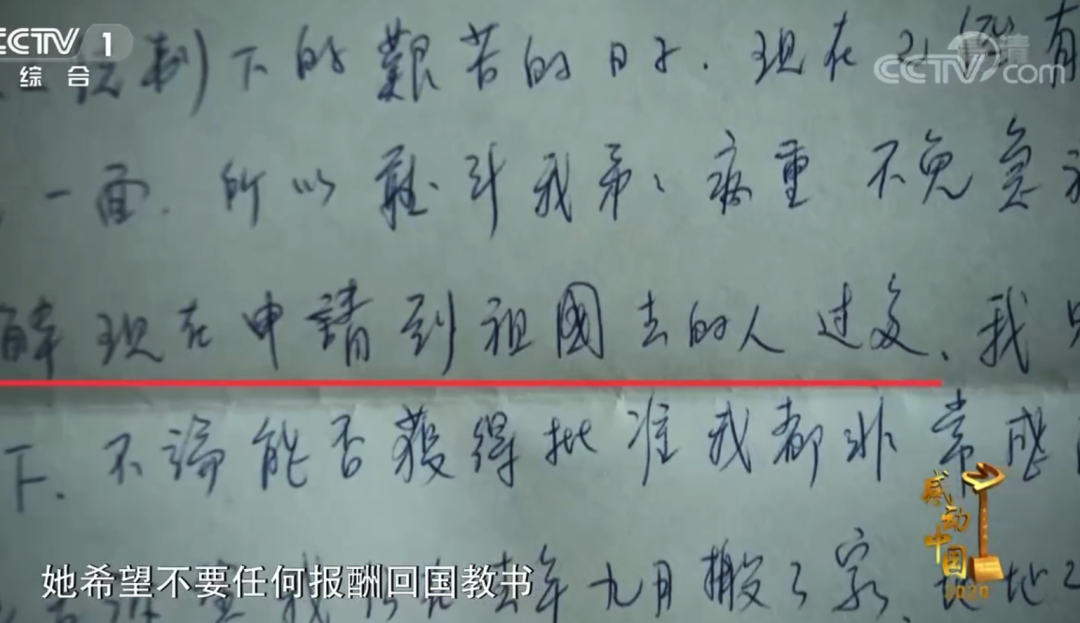 CCTV 1
综合
CCTV.com
制下的艱苦的日子．现在
一面．所以聽到我弟弟病重不免急
解现在申請到祖國去的人过多、我只
下、不論能否獲得批准我都非常感
去年九月搬了家、地
感动中国
2020
她希望不要任何报酬回国教书